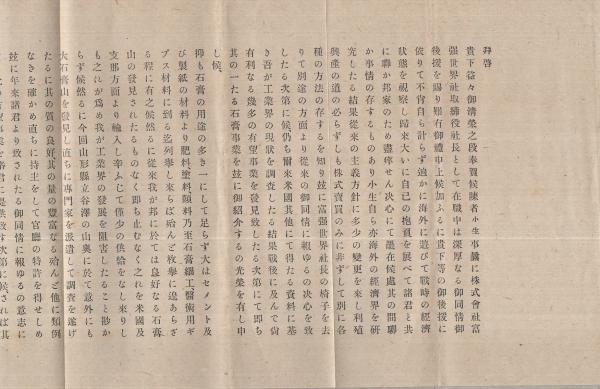 拜啓
貴下益々御清榮之段奉賀候陳者小生事曩に株式會社富
强世界社取締役社長として在職中は深厚なる御同情御
後援を賜り難有御禮申上候加ふるに貴下等の御後援に
依りて不肖自ら計らず遠かに海外に遊びて戰時の經濟
狀態を視察し歸來大いに自己の抱負を展べて諸君と共
に聯か邦家のため盡悴せん決心にて罷在候處其の間聊
か事情の存するものあり小生自ら亦海外の經濟界を硏
究したる結果從來の主義方針に多少の變更を來し利殖
興產の道の必らずしも株式賣買のみに非ずして別に各
種の方法の存するを知り玆に富强世界社長の椅子を去
りて別途の方面より從來の御同情に報ゆるの決心を致
したる次第に候仍ち爾來米國其他にて得たる資料に基
き吾が工業界の現狀を調査したる結果戰後に及んで尙
有利なる幾多の有望事業を發見致したる次第にて卽ち
其の一たる石膏事業を玆に御紹介するの光榮を有し申
し候、
抑も石膏の用途の多き一にして足らず大はセメント及
び製紙の材料より肥料塗料顏料乃至石膏細工、醫術用ギ
プス材料に到る迄列擧し來らば殆んど枚擧に遑あらざ
る程に有之候然るに從來我が邦に於ては良好なる石膏
山の發見されたるものなく卽ち止むなく之れを米國及
支那方面より輸入し辛ふじて僅少の供給をなし來りし
も之れが爲め我が工業界の發展を阻害したること尠か
らず候然るに今回山形縣立谷澤の山奧に於て意外にも
大石膏山を發見し直ちに專門家を派遣して調査を遂げ
たるに其の質の良好其の量の豐富なる殆んど他に類例
なきを確かめ直ちに持主をして官廳の特許を得せしめ
玆に年來諸君より致されたる御同情に報ゆるの意志に